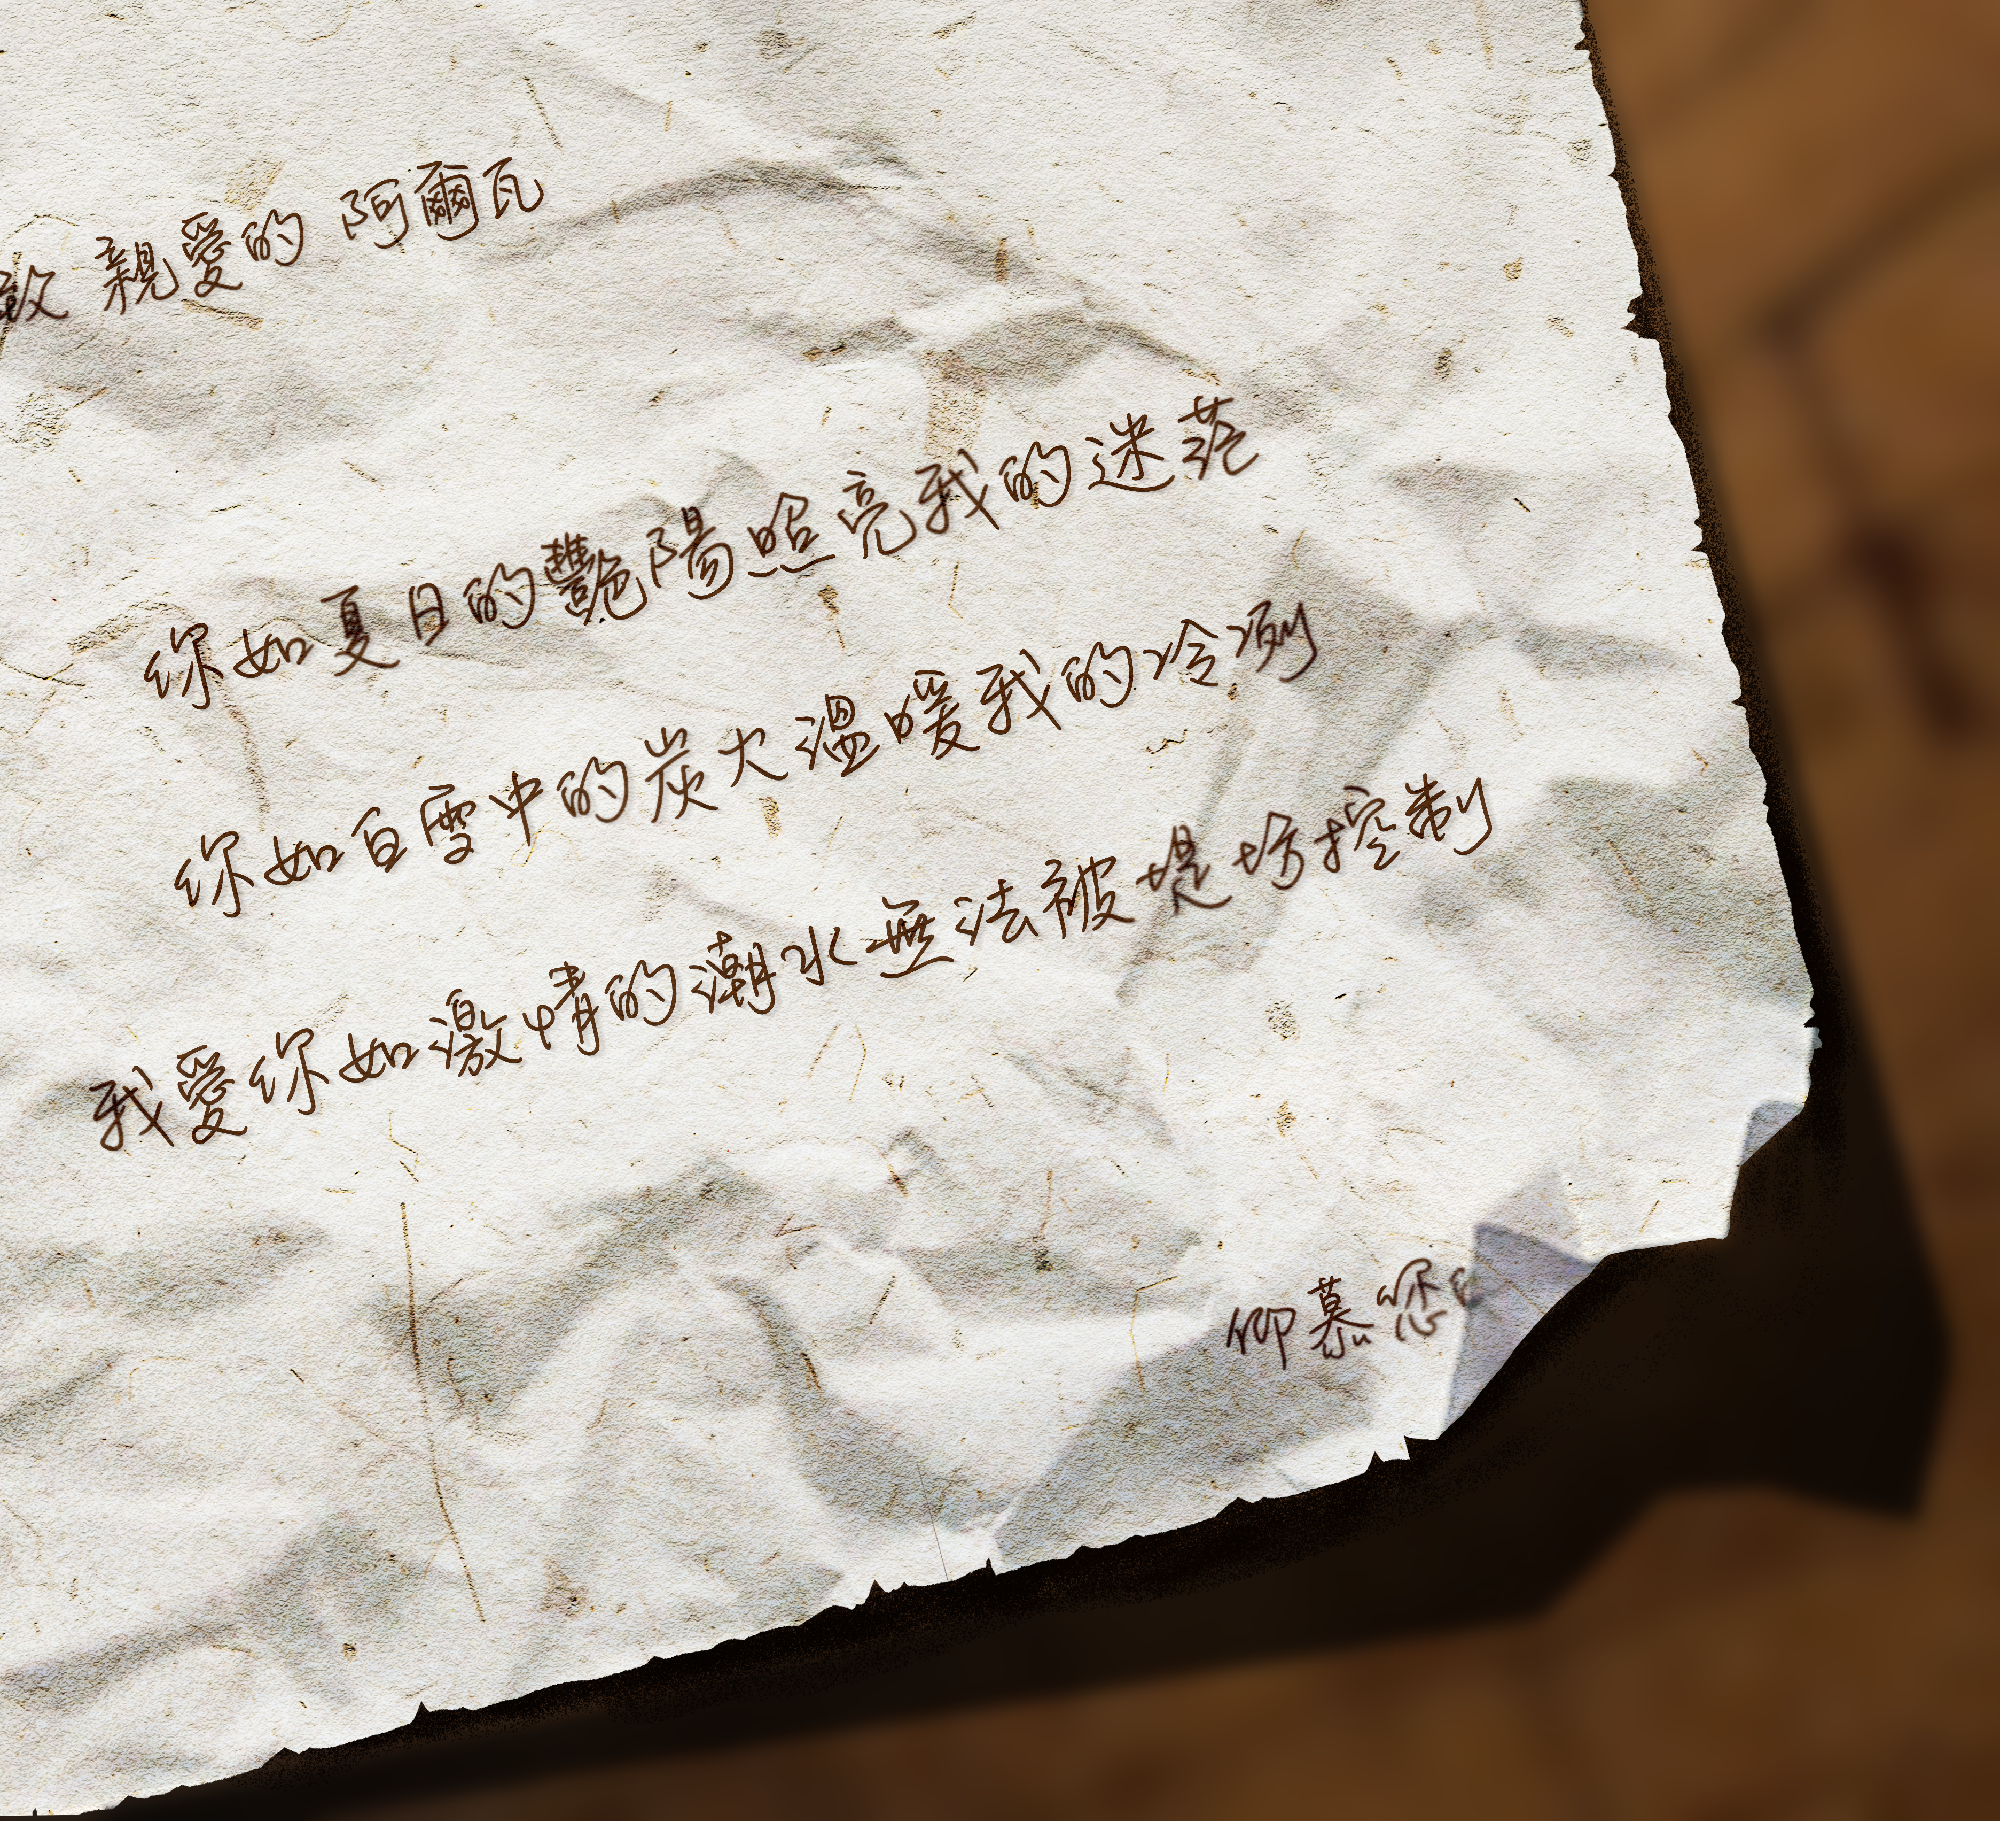 致 親愛的 阿爾瓦
你如夏日的豔陽照亮我的迷茫
你如白雪中的炭火溫暖我的冷冽
我愛你如激情的潮水無法被堤坊控制
仰慕您